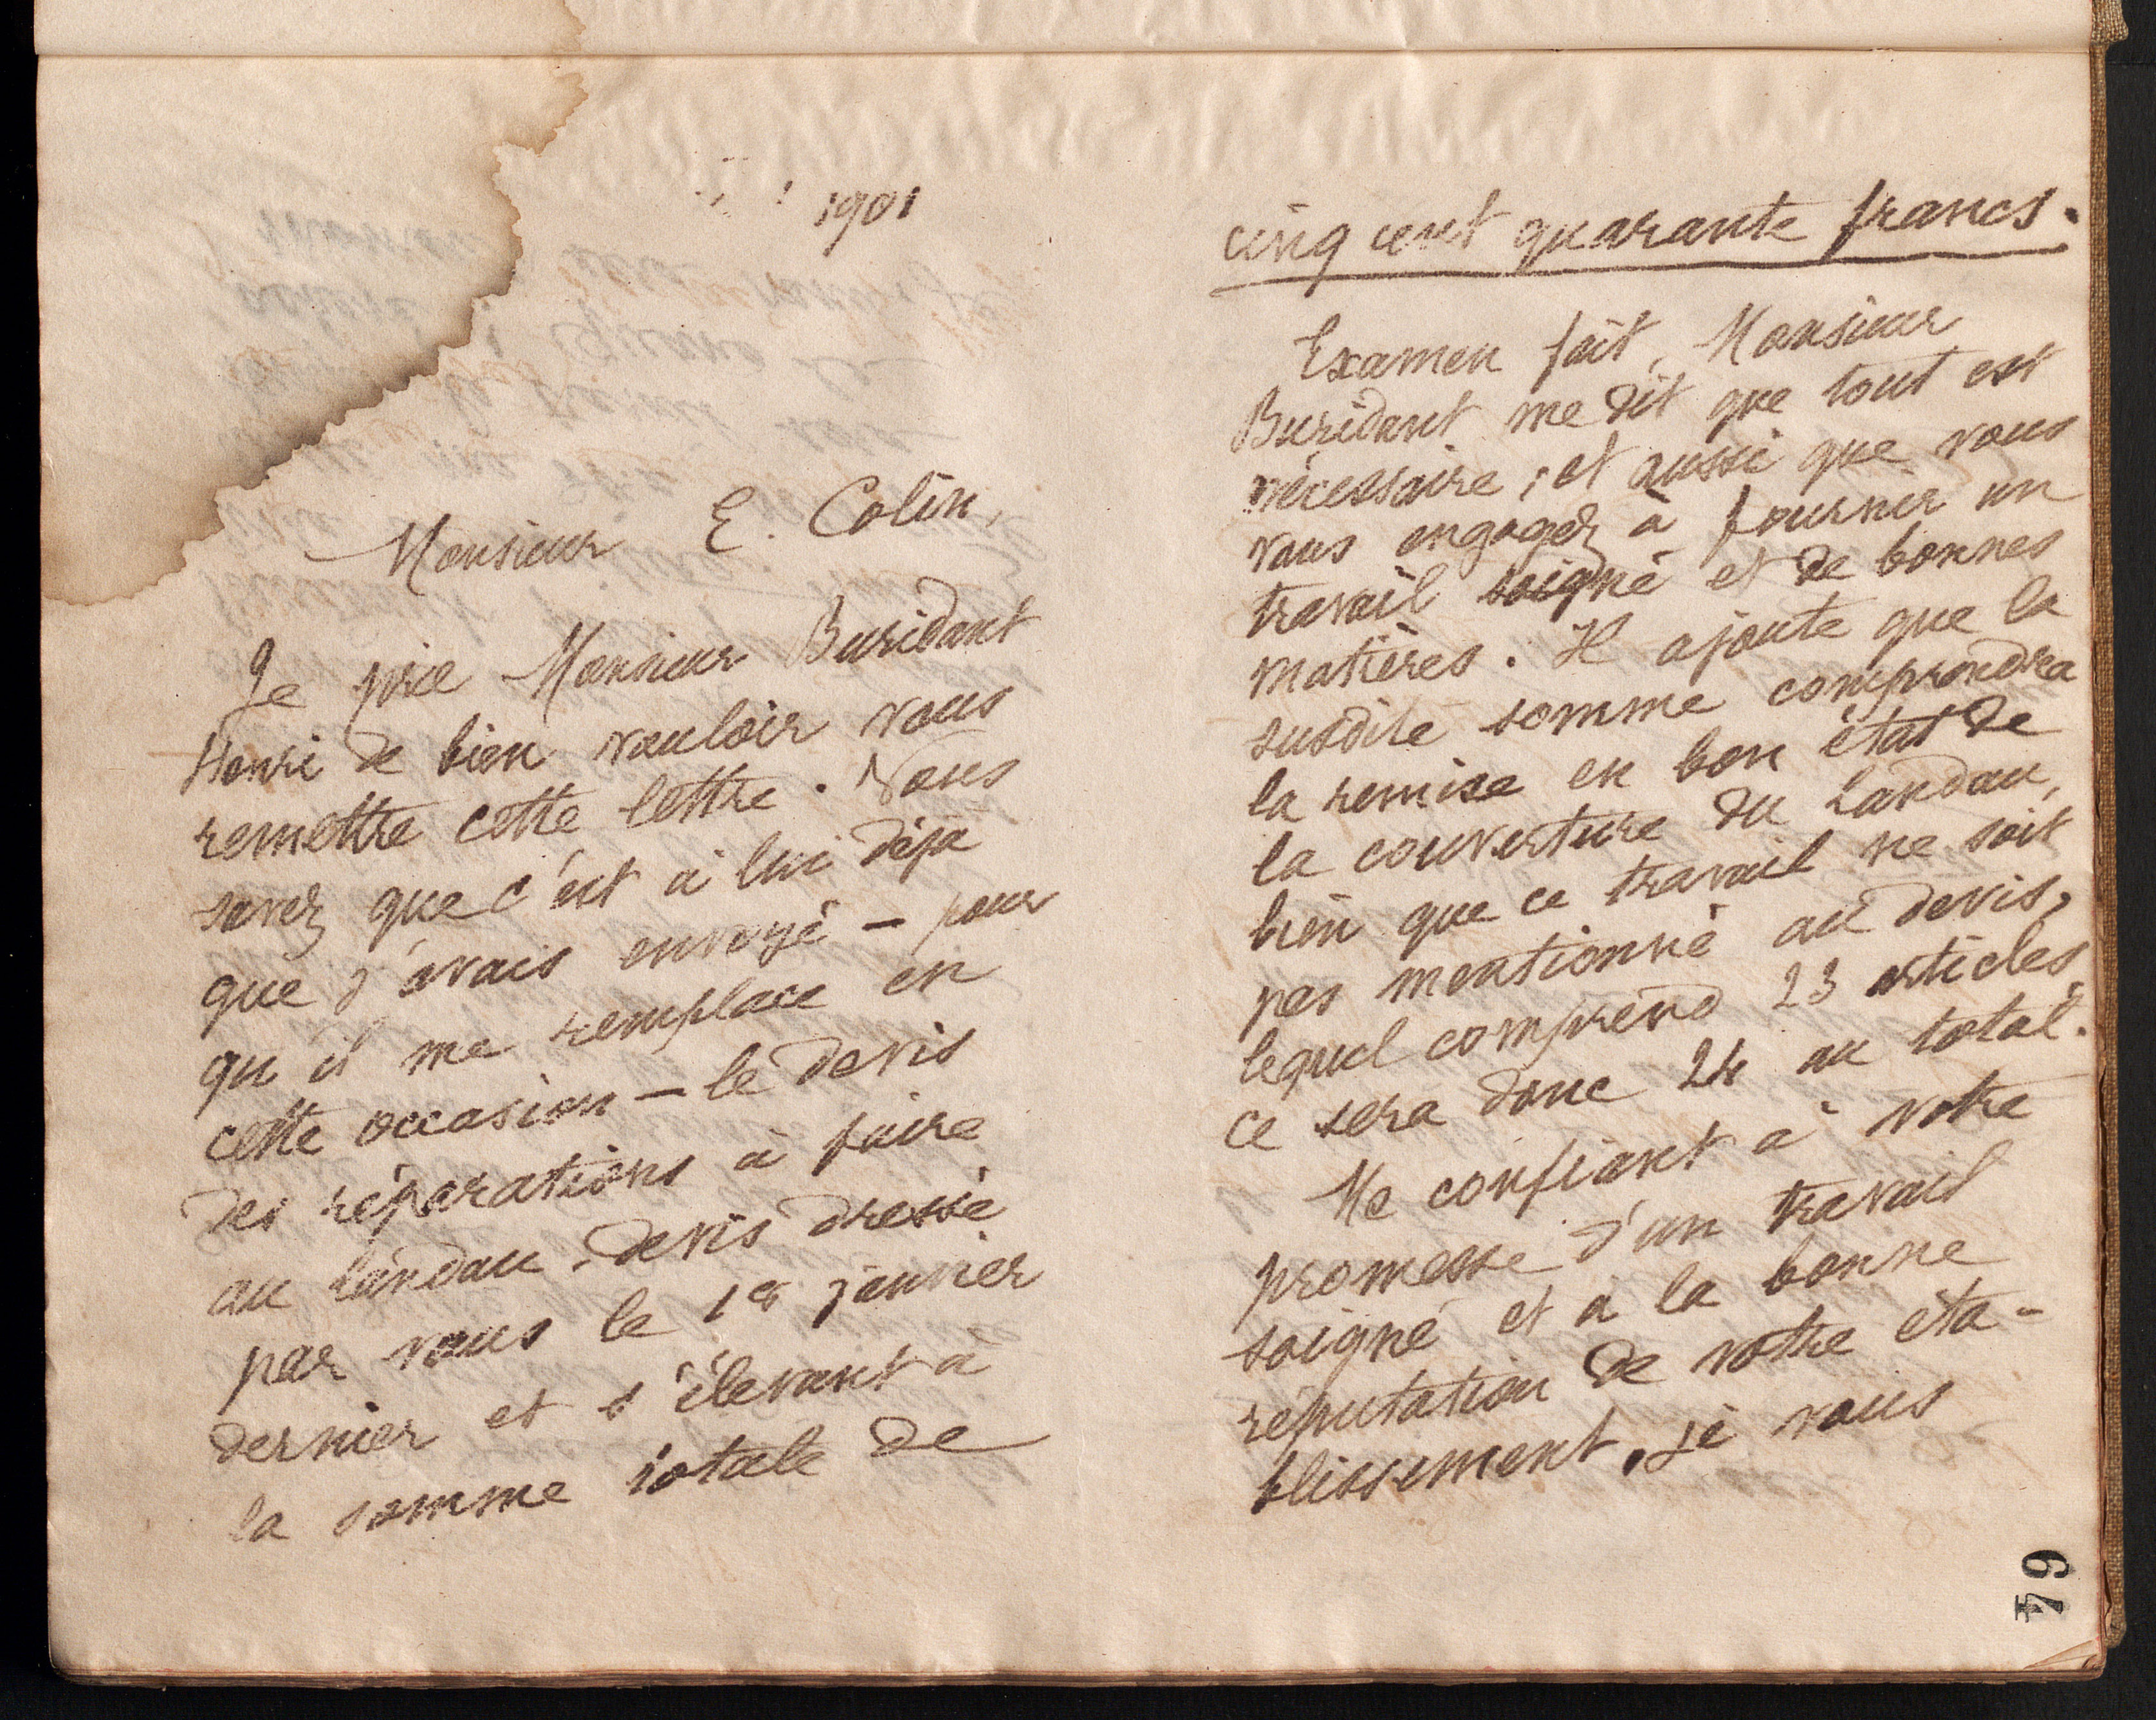 1901
Monsieur E. Colin,
Je prie Monsieur Buridant
Henri de bien vouloir vous
remettre cette lettre. Vous
savez que c'est à lui déjà
que j'avais envoyé – pour
qu'il me remplace en
cette occasion – le devis
des réparations à faire
au Landau, devis dressé
par vous le 18 janvier
dernier et s'élevant à
la somme totale de
cinq cent quarante francs.
Examen fait, Monsieur
Buridant me dit que tout est
nécessaire ; et aussi que vous
vous engagez à fournir un
travail soigné et de bonnes
matières. Il ajoute que la
susdite somme comprendra
la remise en bon état de
la couverture du Landau,
bien que ce travail ne soit
pas mentionné au devis,
lequel comprend 23 articles,
ce sera donc 24 au total.
Me confiant à votre
promesse d'un travail
soigné et à la bonne
réputation de votre éta-
blissement, je vous
64